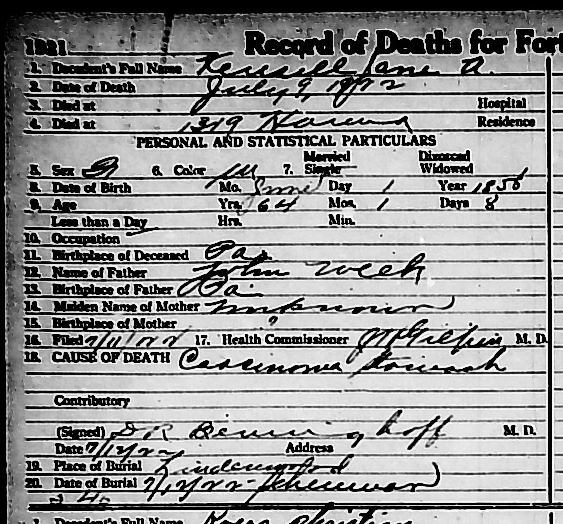 1921 Record of Deaths for Fort
1. Decedent's Full Name Kensell Jane A.
2. Date of Death July 9, 1922
3. Died at Hospital
4. Died at 1319 Residence
PERSONAL AND STATISTICAL PARTICULARS
Married Divorced
5. Sex 6. Color W 7. Single Widowed
8. Date of Birth Mo. June Day 1 Year 1858
9. Age Yrs. 64 Mos. 1 Days 8
Less than a Day Hrs. Min.
10. Occupation
11. Birthplace of Deceased Pa.
12. Name of Father John Week
13. Birthplace of Father Pa.
14. Maiden Name of Mother Unknown
15. Birthplace of Mother ?
16. Filed 7/11/22 17. Health Commissioner McGilpin M. D.
18. CAUSE OF DEATH Carcinoma Stomach
Contributory
(Signed) D R Benninghoff M. D.
Date 7/12/22 Address
19. Place of Burial Lindenwood
20. Date of Burial 7/12/22
1. Decedent's Full Name Christian